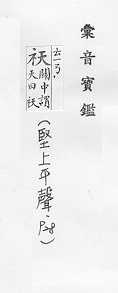 彙音寶鑑
去一ㄢ
祆 關中謂
天曰祆
(堅上平聲，P28)